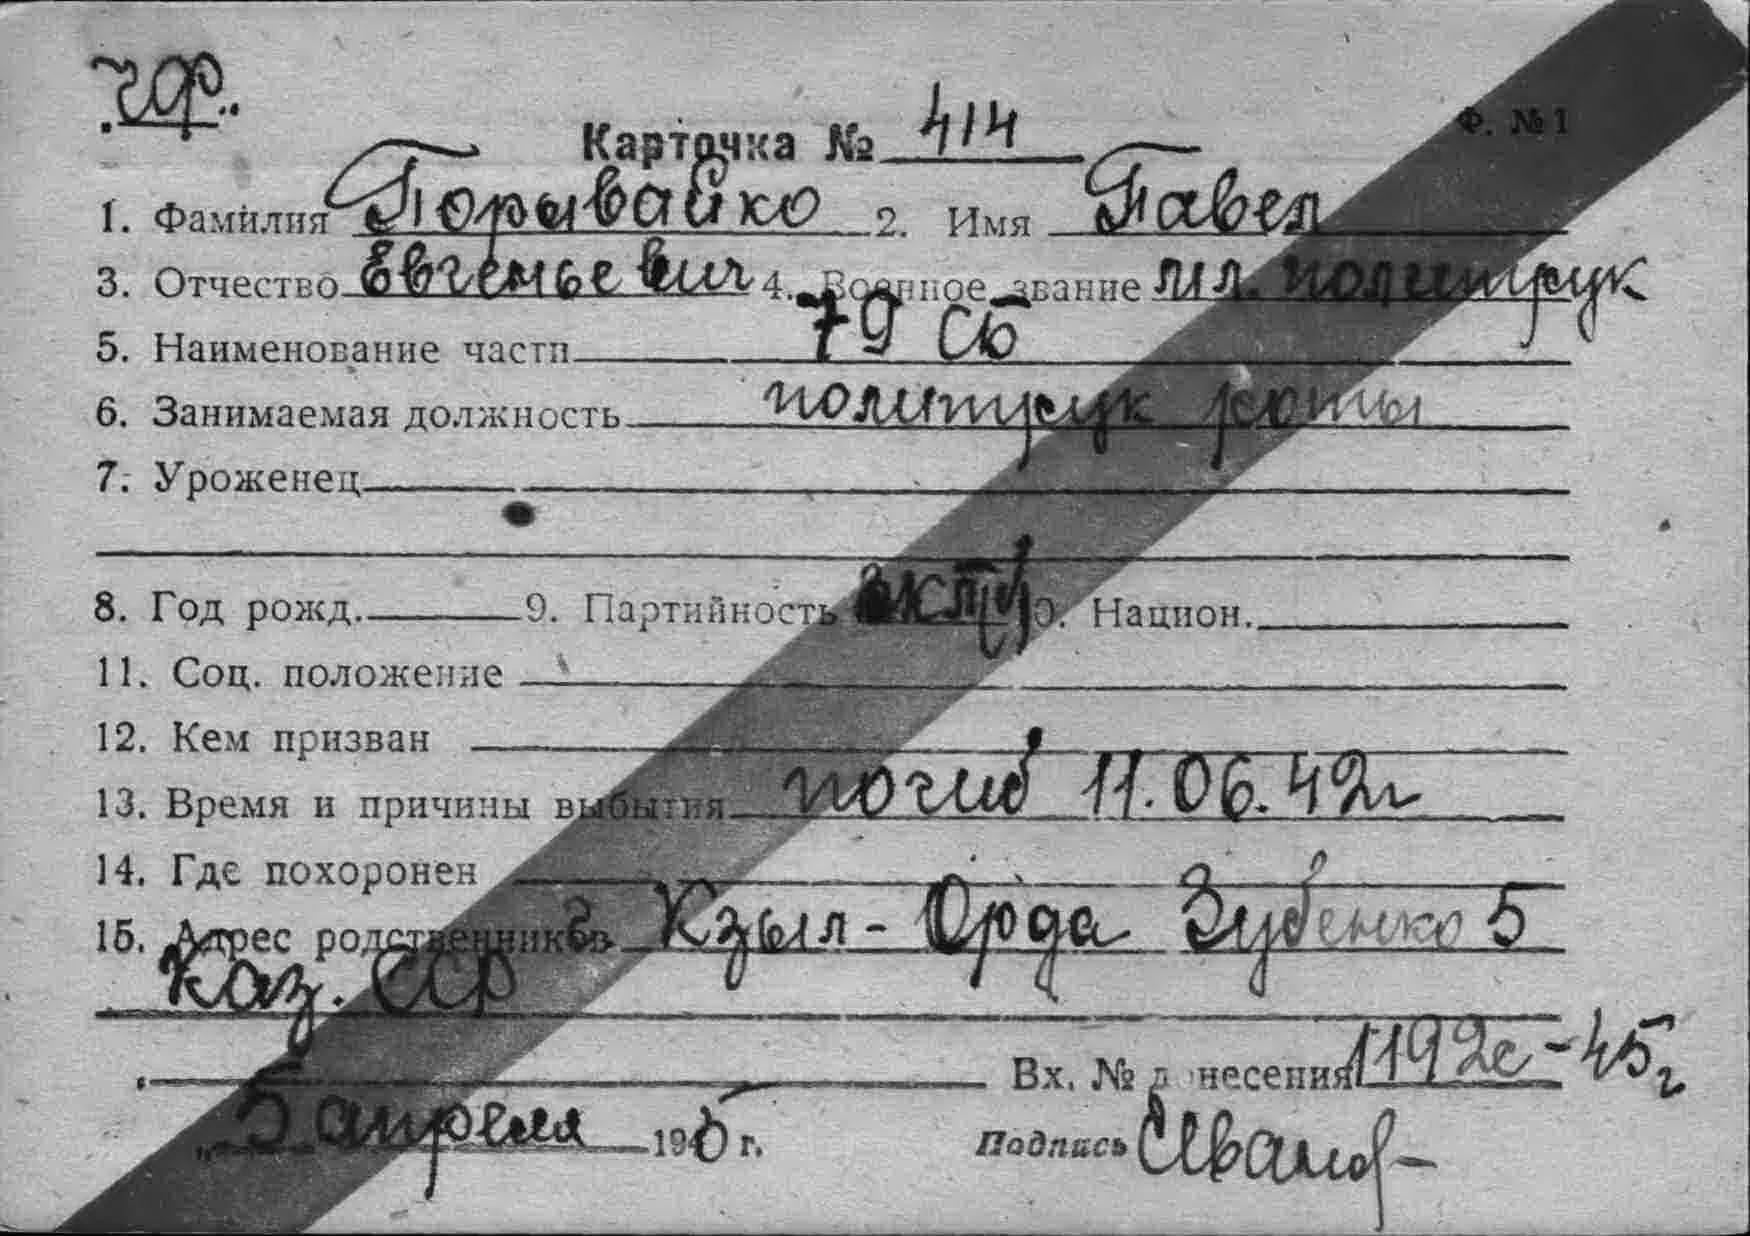 ЧФ.
Карточка № 414
Ф. №1
1. Фамилия Порывайко 2. Имя Павел
3. Отчество Евгеньевич 4. Военное звание мл. политрук
5. Наименование части 79 СБ
6. Занимаемая должность политрук роты
7. Уроженец
8. Год рожд. 9. Партийность ВКП(б) 10. Национ.
11. Соц. положение
12. Кем призван
13. Время и причины выбытия погиб 11.06.42г
14. Где похоронен
15. Адрес родственников г. Кзыл-Орда Зубенко 5
Каз. ССР
Вх. № донесения 1192с-45г
„5 апреля 1945 г. Подпись